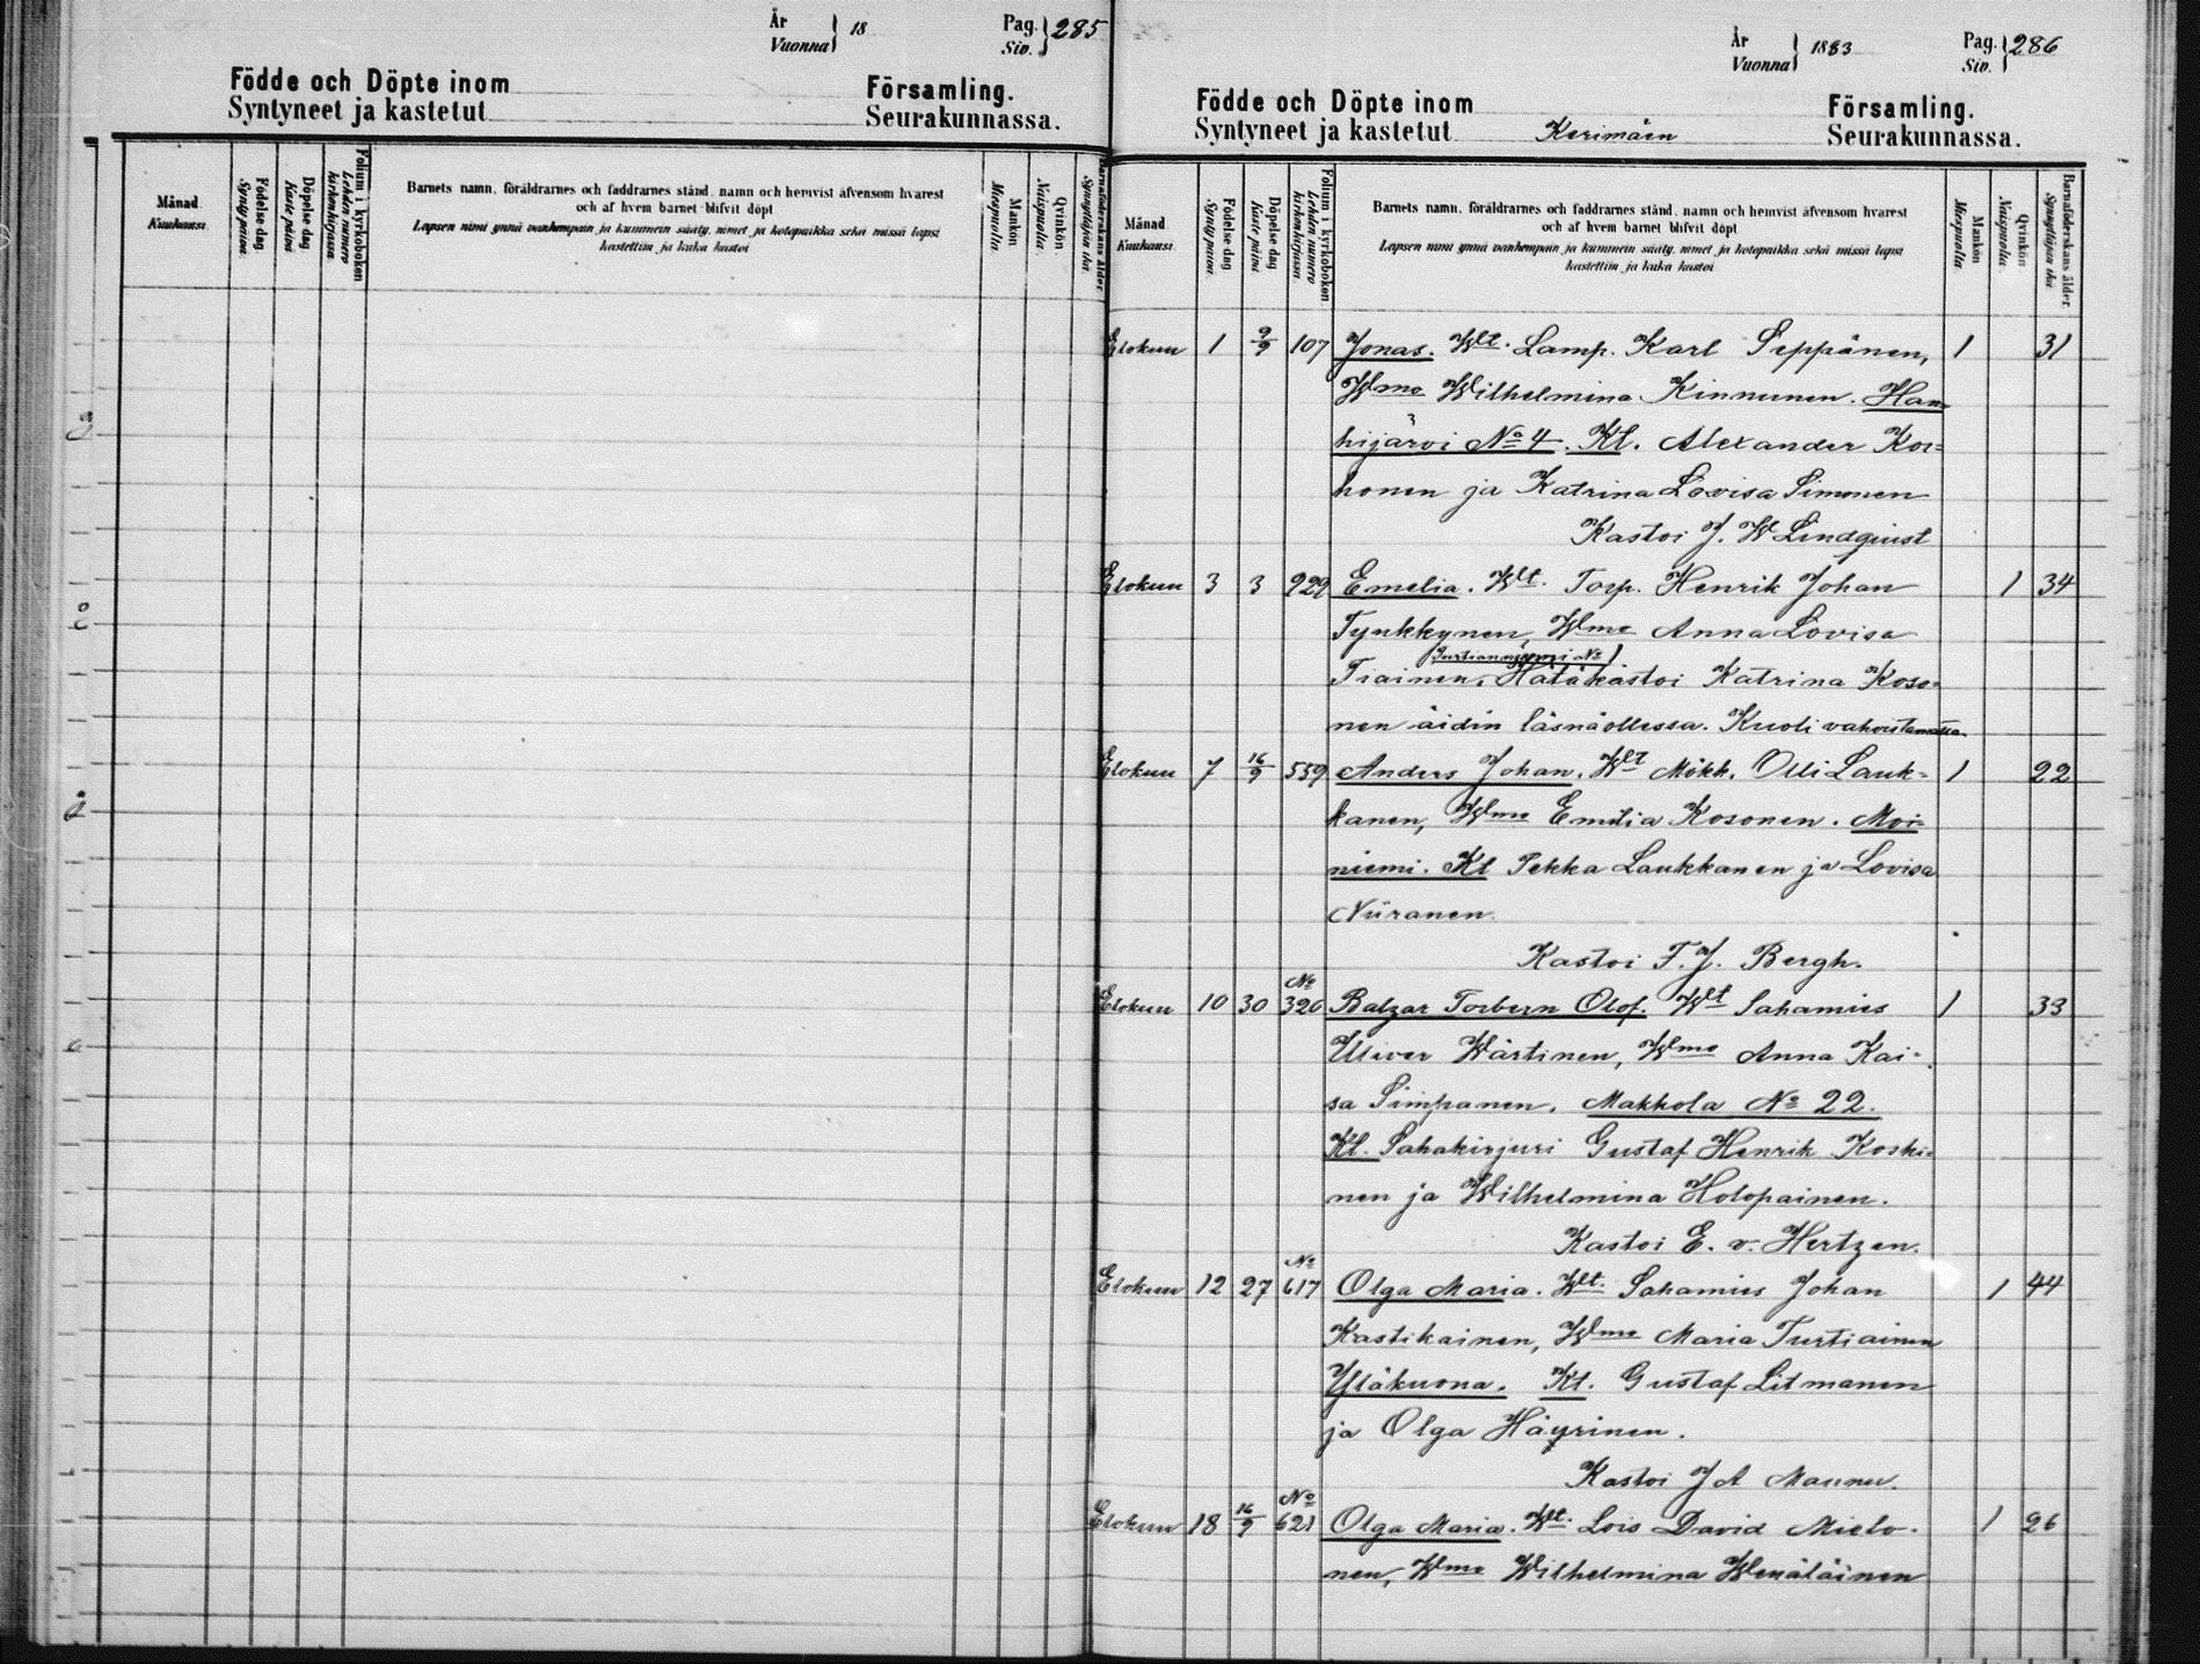 År
Vuonna } 18
Pag.
Siv. } 285
Födde och Döpte inom
Syntyneet ja kastetut
Församling.
Seurakunnassa.
Månad
Kuukausi.
Födelse dag
Synty päivä.
Döpelse dag
Kaste päivä
Folium i kyrkoboken
Lehden numero kirkonkirjassa.
Barnets namn, föräldrarnes och faddrarnes stånd, namn och hemvist äfvensom hvarest
och af hvem barnet blifvit döpt
Lapsen nimi ynnä vanhempain ja kummein sääty, nimet ja kotopaikka sekä missä lapsi
kastettiin ja kuka kastoi
Mankön
Miespuolia
Qvinkön
Naispuolia.
Barnaföderskans ålder
Synnyttäjän ikä
År
Vuonna } 1883
Pag.
Siv. } 286
Födde och Döpte inom
Syntyneet ja kastetut Kerimäen
Församling.
Seurakunnassa.
Månad
Kuukausi
Födelse dag
Synty päivä.
Döpelse dag
Kaste päivä
Folium i kyrkoboken
Lehden numero kirkonkirjassa
Barnets namn, föräldrarnes och faddrarnes stånd, namn och hemvist äfvensom hvarest
och af hvem barnet blifvit döpt
Lapsen nimi ynnä vanhempain ja kummein sääty, nimet ja kotopaikka sekä missä lapsi
kastettiin ja kuka kastoi
Mankön
Miespuolia
Qvinkön
Naispuolia
Barnaföderskans ålder
Synnyttäjän ikä
Elokun 1 9/9 107 Jonas. Wlt. Lamp. Karl Seppänen, 1 31
Wmo Wilhelmina Kinnunen. Han-
hijärvi No 4. Kl. Alexander Kor-
honen ja Katrina Lovisa Simonen
Kastoi J. W Lindquist
Elokun 3 3 929 Emelia. Wlt. Torp. Henrik Johan 1 34
Tynkkynen, Wmo Anna Lovisa
No 1
Tiainen. Hätäkastoi Katrina Koso-
nen äidin läsnäollessa. Kuoli vahvistamatta.
Elokun 7 16/9 559 Anders Johan. Wlt Mökk. Olli Lauk- 1 22
kanen, Wmo Emilia Kosonen. Moi-
niemi. Kl Pekka Laukkanen ja Lovisa
Niiranen.
Kastoi F. J. Bergh.
No
Elokun 10 30 326 Balzar Torbern Olof. Wlt Sahamies 1 33
Uliver Wärtinen, Wmo Anna Kai-
sa Simpanen. Makkola No 22.
Kl. Sahakirjuri Gustaf Henrik Koski-
nen ja Wilhelmina Holopainen.
Kastoi E. v. Hertzen.
No
Elokun 12 27 617 Olga Maria. Wlt. Sahamies Johan 1 44
Kastikainen, Wmo Maria Turtiainen
Yläkuona. Kl. Gustaf Litmanen
ja Olga Häyrinen.
Kastoi J A Manner.
No
Elokun 18 16/9 621 Olga Maria. Wlt. Lois David Mielo- 1 26
nen, Wmo Wilhelmina Wenäläinen